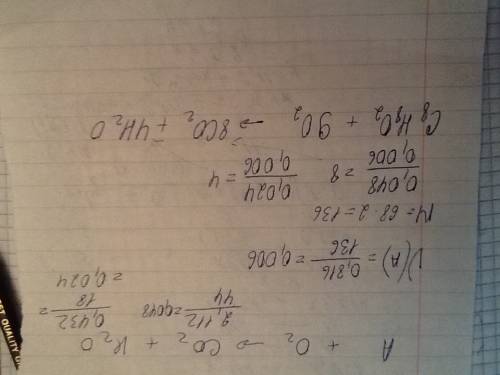 A + O₂ → CO₂ + H₂O
2,112/44 = 0,048 0,432/18 =
= 0,024
ν(A) = 0,816/136 = 0,006
M = 68 · 2 = 136
0,048/0,006 = 8 0,024/0,006 = 4
C₈H₈O₂ + 9O₂ → 8CO₂ + 4H₂O
EST QUALITY